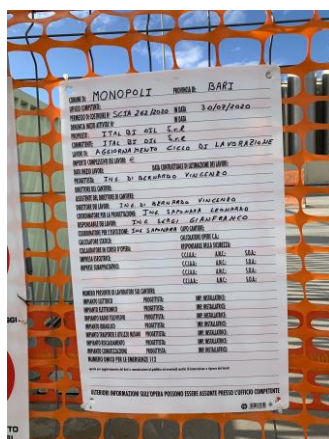 COMUNE DI: MONOPOLI PROVINCIA DI: BARI
UFFICIO COMPETENTE:
PERMESSO DI COSTRUIRE N° SCIA 262/2020 IN DATA 30/07/2020
DENUNCIA INIZIO ATTIVITA' N° IN DATA
PROPRIETA': ITAL BI OIL S.r.l
COMMITTENTE: ITAL BI OIL S.r.l
LAVORI DI: AGGIORNAMENTO CICLO DI LAVORAZIONE
IMPORTO COMPLESSIVO DEI LAVORI: €
DATA INIZIO LAVORI: DATA CONTRATTUALE DI ULTIMAZIONE DEI LAVORI:
PROGETTISTA: ING. DI BERNARDO VINCENZO
DIRETTORE DEL CANTIERE:
ASSISTENTE DEL DIRETTORE DI CANTIERE:
DIRETTORE DEI LAVORI: ING. DI BERNARDO VINCENZO
COORDINATORE PER LA PROGETTAZIONE: ING. LEONARDO
RESPONSABILE DEI LAVORI: ING. GIANFRANCO
COORDINATORE PER L'ESECUZIONE: ING. LEONARDO CAPO CANTIERE:
CALCOLATORE STATICO: CALCOLAZIONI OPERE C.A.:
COLLAUDATORE IN CORSO D'OPERA: RESPONSABILE DELLA SICUREZZA:
IMPRESA ESECUTRICE: C.C.I.A.A.: A.N.C.: S.O.A.:
IMPRESA SUBAPPALTATRICE: C.C.I.A.A.: A.N.C.: S.O.A.:
C.C.I.A.A.: A.N.C.: S.O.A.:
C.C.I.A.A.: A.N.C.: S.O.A.:
C.C.I.A.A.: A.N.C.: S.O.A.:
NUMERO PRESUNTO DI LAVORATORI SUL CANTIERE:
IMPIANTO ELETTRICO PROGETTISTA: IMP. INSTALLATRICE:
IMPIANTO ELETTRONICO PROGETTISTA: IMP. INSTALLATRICE:
IMPIANTO RADIO TELEVISIVO PROGETTISTA: IMP. INSTALLATRICE:
IMPIANTO IDRAULICO PROGETTISTA: IMP. INSTALLATRICE:
IMPIANTO TRASPORTO E UTILIZZO METANO PROGETTISTA: IMP. INSTALLATRICE:
IMPIANTO RISCALDAMENTO PROGETTISTA: IMP. INSTALLATRICE:
IMPIANTO CLIMATIZZAZIONE PROGETTISTA: IMP. INSTALLATRICE:
NUMERO UNICO PER LE EMERGENZE 112
ULTERIORI INFORMAZIONI SULL'OPERA POSSONO ESSERE ASSUNTE PRESSO L'UFFICIO COMPETENTE